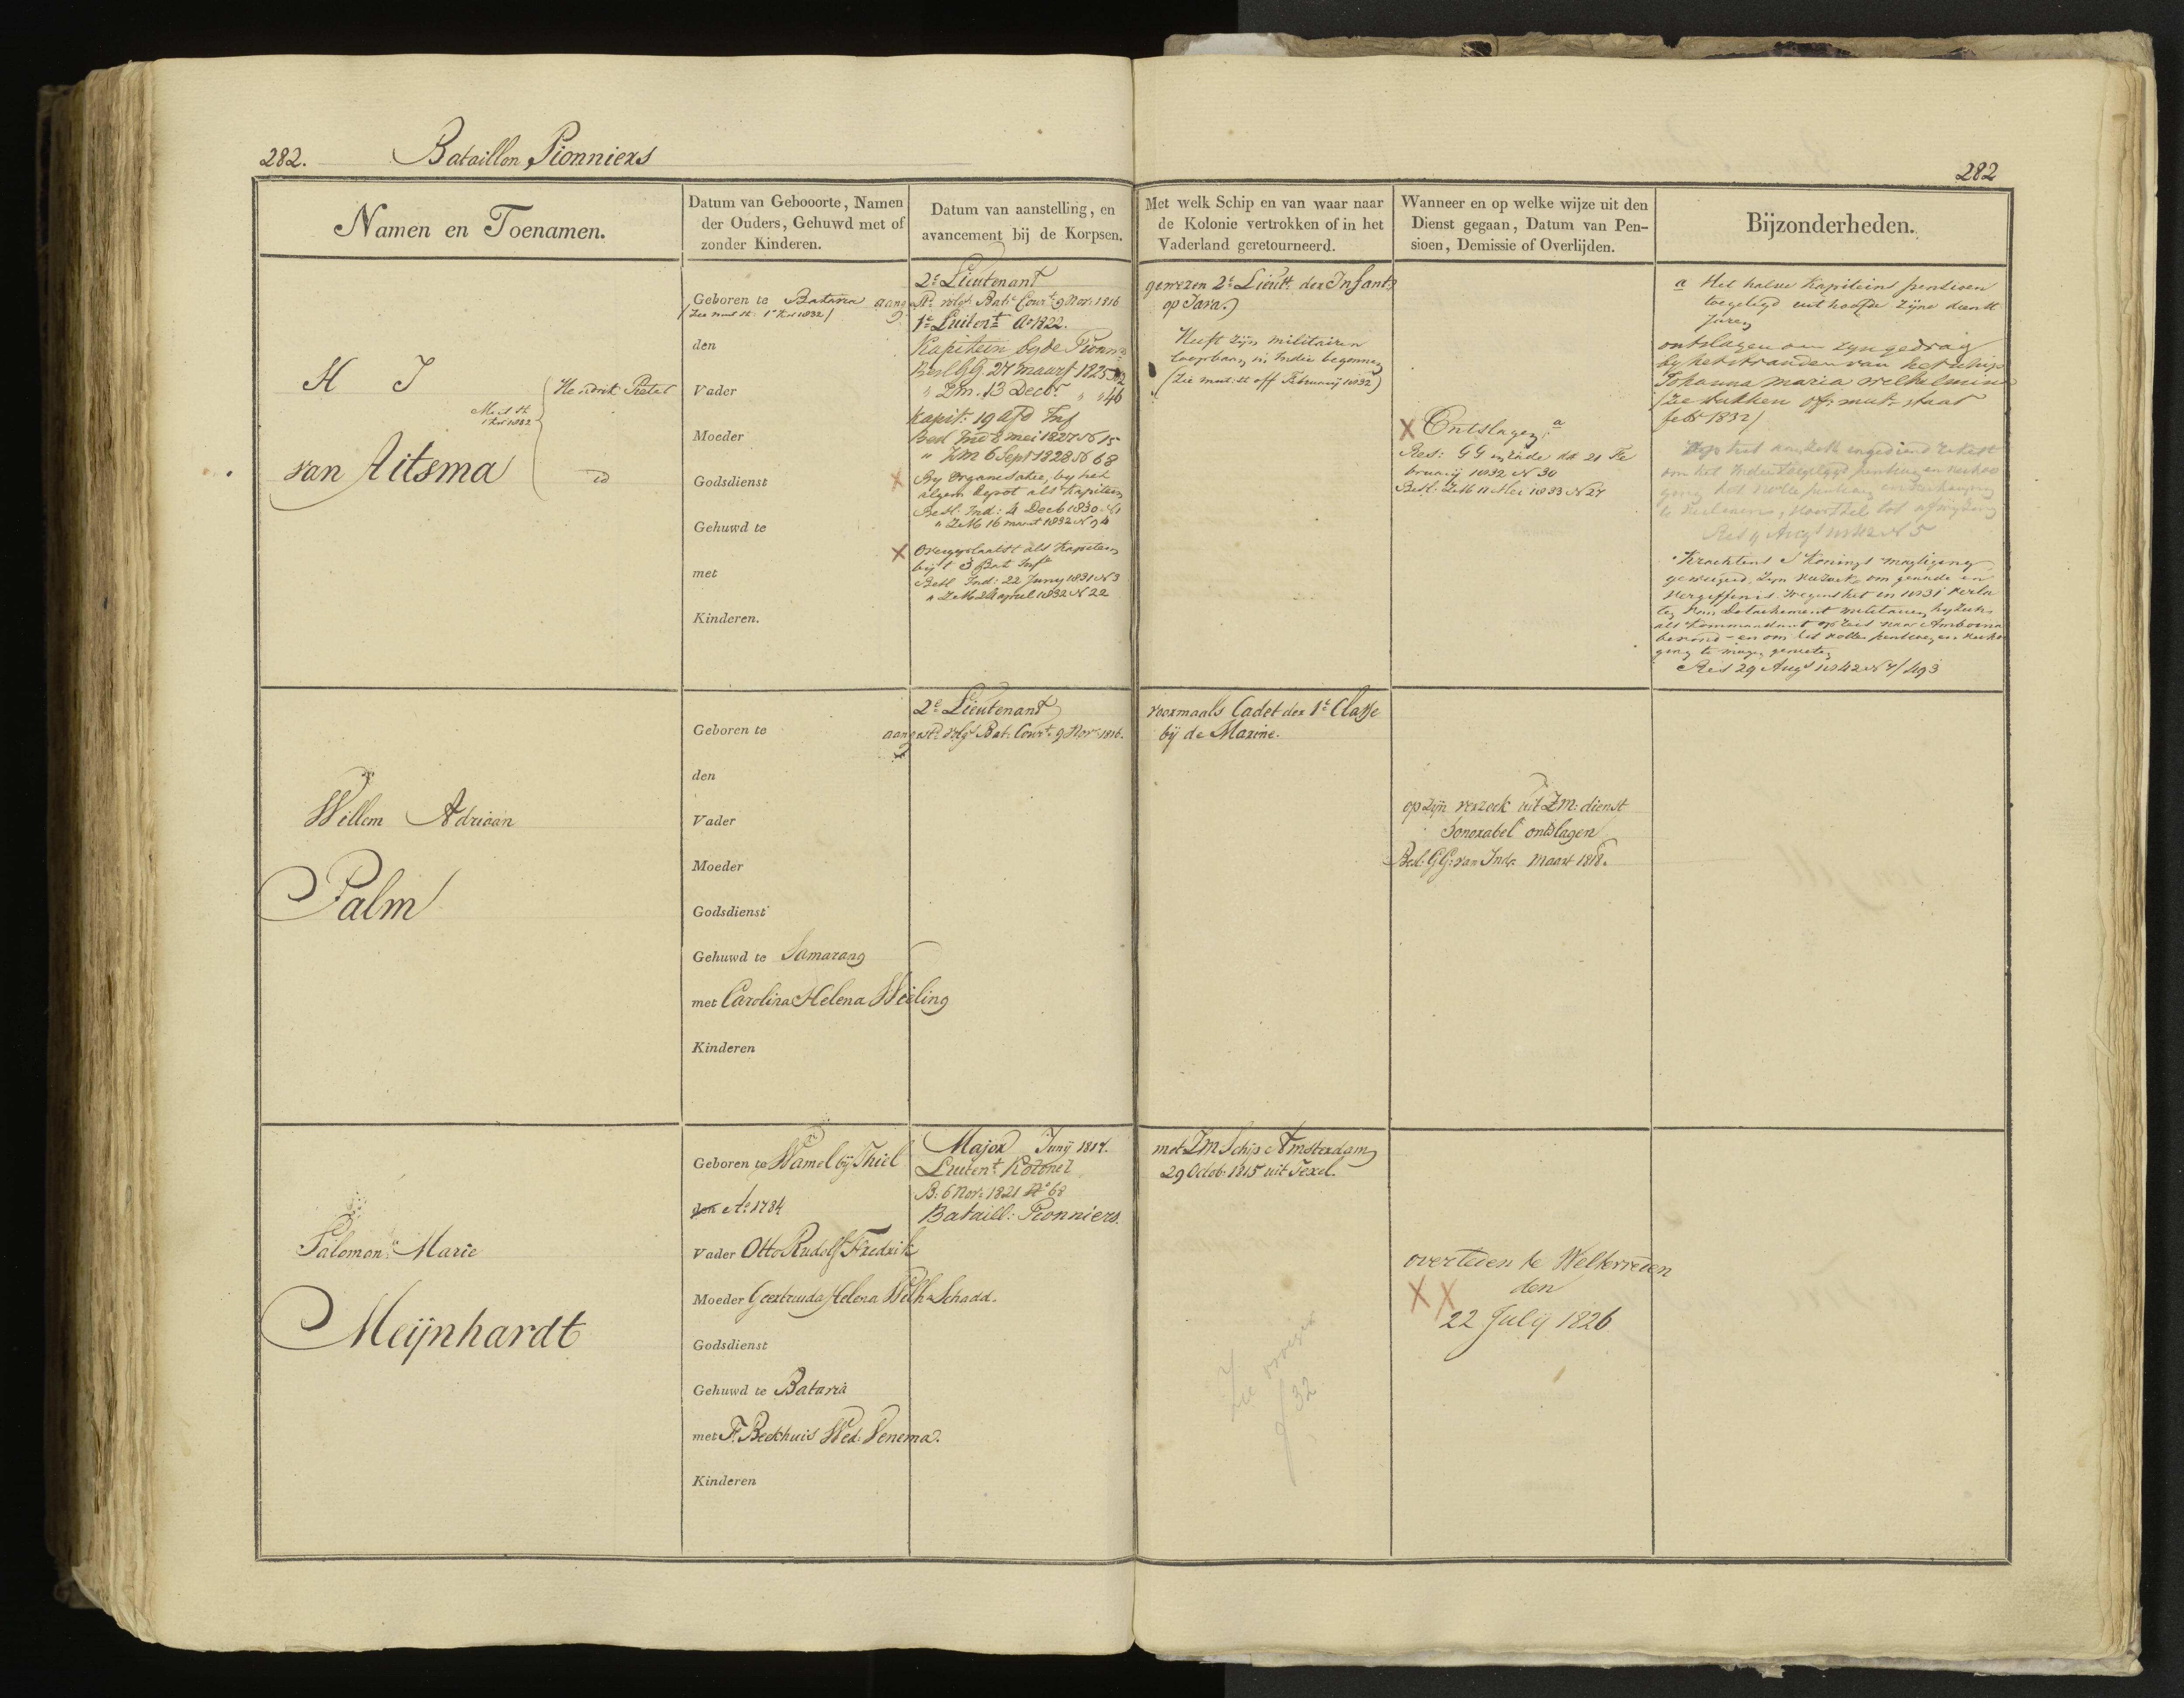 282.
Bataillon Pionniers
282
Namen en Toenamen.
Datum van Gebooorte, Namen
der Ouders, Gehuwd met of
zonder Kinderen.
Datum van aanstelling, en
avancement bij de Korpsen.
Met welk Schip en van waar naar
de Kolonie vertrokken of in het
Vaderland geretourneerd.
Wanneer en op welke wijze uit den
Dienst gegaan, Datum van Pen-
sioen, Demissie of Overlijden.
Bijzonderheden.
H J
van Aitsma
Hendrik Pieter
id
Geboren te Batavia
den
Vader
Moeder
Godsdienst
Gehuwd te
met
Kinderen.
2e Lieutenant
aangest. volgs. Bat. Cour.t 9 Nov. 1816
1e Luitent Ao 1822.
Kapitein by de Pionn.s
Besl GG. 27 maart 1825 No 2
" Zm. 13 Decbr. " " 46
Kapit: 19 afd Inf
Besl Ind 8 mei 1827 N 15
" Zm 6 Sept 1828 N 68
By Organisatie, by het
algem Depot als Kapitein
Besl. Ind: 4 Decb 1830 N 1
" ZM 16 maart 1832 N 94
Overgeplaatst als Kapitein
bij t 3 Bat Inf
Besl Ind: 22 Juny 1831 N 3
" ZM 24 april 1832 N 22
gewezen 2e Lieut.t der Infant.
op Java.)
Heeft zijn militairen
loopbaan in Indie begonnen
(zie mut: st off February 1832)
X Ontslagen a
Res: GG in rade dd 21 Fe
bruarij 1832 N 30
Besl. ZM 11 Mei 1833 N 27
a Het halve Kapiteins pensioen
toegelegd uit hoofde zijne dienst
Jaren
ontslagen om zyn gedrag
by het stranden van het schip
Johanna maria wilhelmina
(Zie stukken off: mut: staat
febr 1832)
Res 11 Aug 1842 N 5
Krachtens s Konings magtiging
geweigerd, zijn verzoek om genade en
vergiffenis wegens het in 1831 verla
ten van Detachement militairen
als Kommandant op reis naar Amboina
Res 29 Aug 1842 N 7/493
Willem Adriaan
Palm
Geboren te
den
Vader
Moeder
Godsdienst
Gehuwd te Samarang
met Carolina Helena Wieling
Kinderen
2e Lieutenant
aangest.d volgs. Bat. Cour.t 9 Nov. 1816.
voormaals Cadet der 1e Classe
bij de Marine.
op zijn verzoek uit Zm: dienst
honorabel ontslagen
Besl: GG: van Inde Maart 1818.
Salomon Marie
Meijnhardt
Geboren te Wamel bij Thiel
den Ao 1784
Vader Otto Rudolf Fredrik
Moeder Geertruida Helena Wilh.a Schadd.
Godsdienst
Gehuwd te Batavia
met F. Beckhuis Wed. Venema.
Kinderen
Major Junij 1817.
Luitent. Kolonel
B: 6 Nov: 1821 No 68
Bataill: Pionniers.
met Zm Schip Amsterdam
29 Octob: 1815 uit Texel.
overleden te Welterreden
X X den
22 July 1826